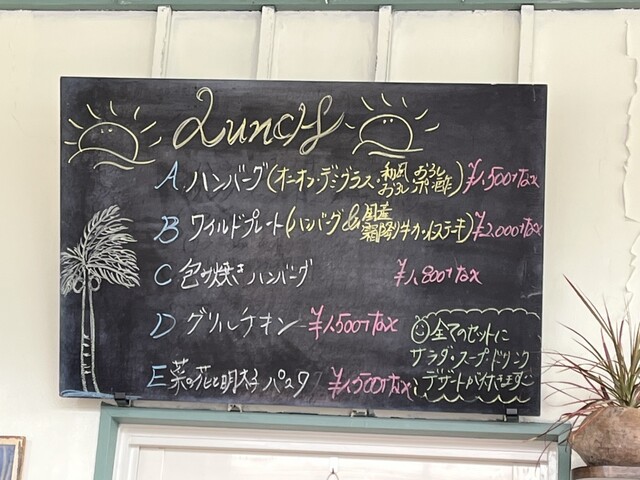 LuncH
A. ハンバーグ(オニオン・デミグラス・和風おろし・おろしポン酢) ¥1,500+tax
B ワイルドプレート(ハンバーグ&国産霜降り牛カットステーキ) ¥2,000+tax
C 包み焼きハンバーグ ¥1,800+tax
D グリルチキン ¥1,500+tax
E 菜の花と明太子パスタ ¥1,500+tax
全てのセットに
サラダ・スープ・ドリンク
デザートが付きます